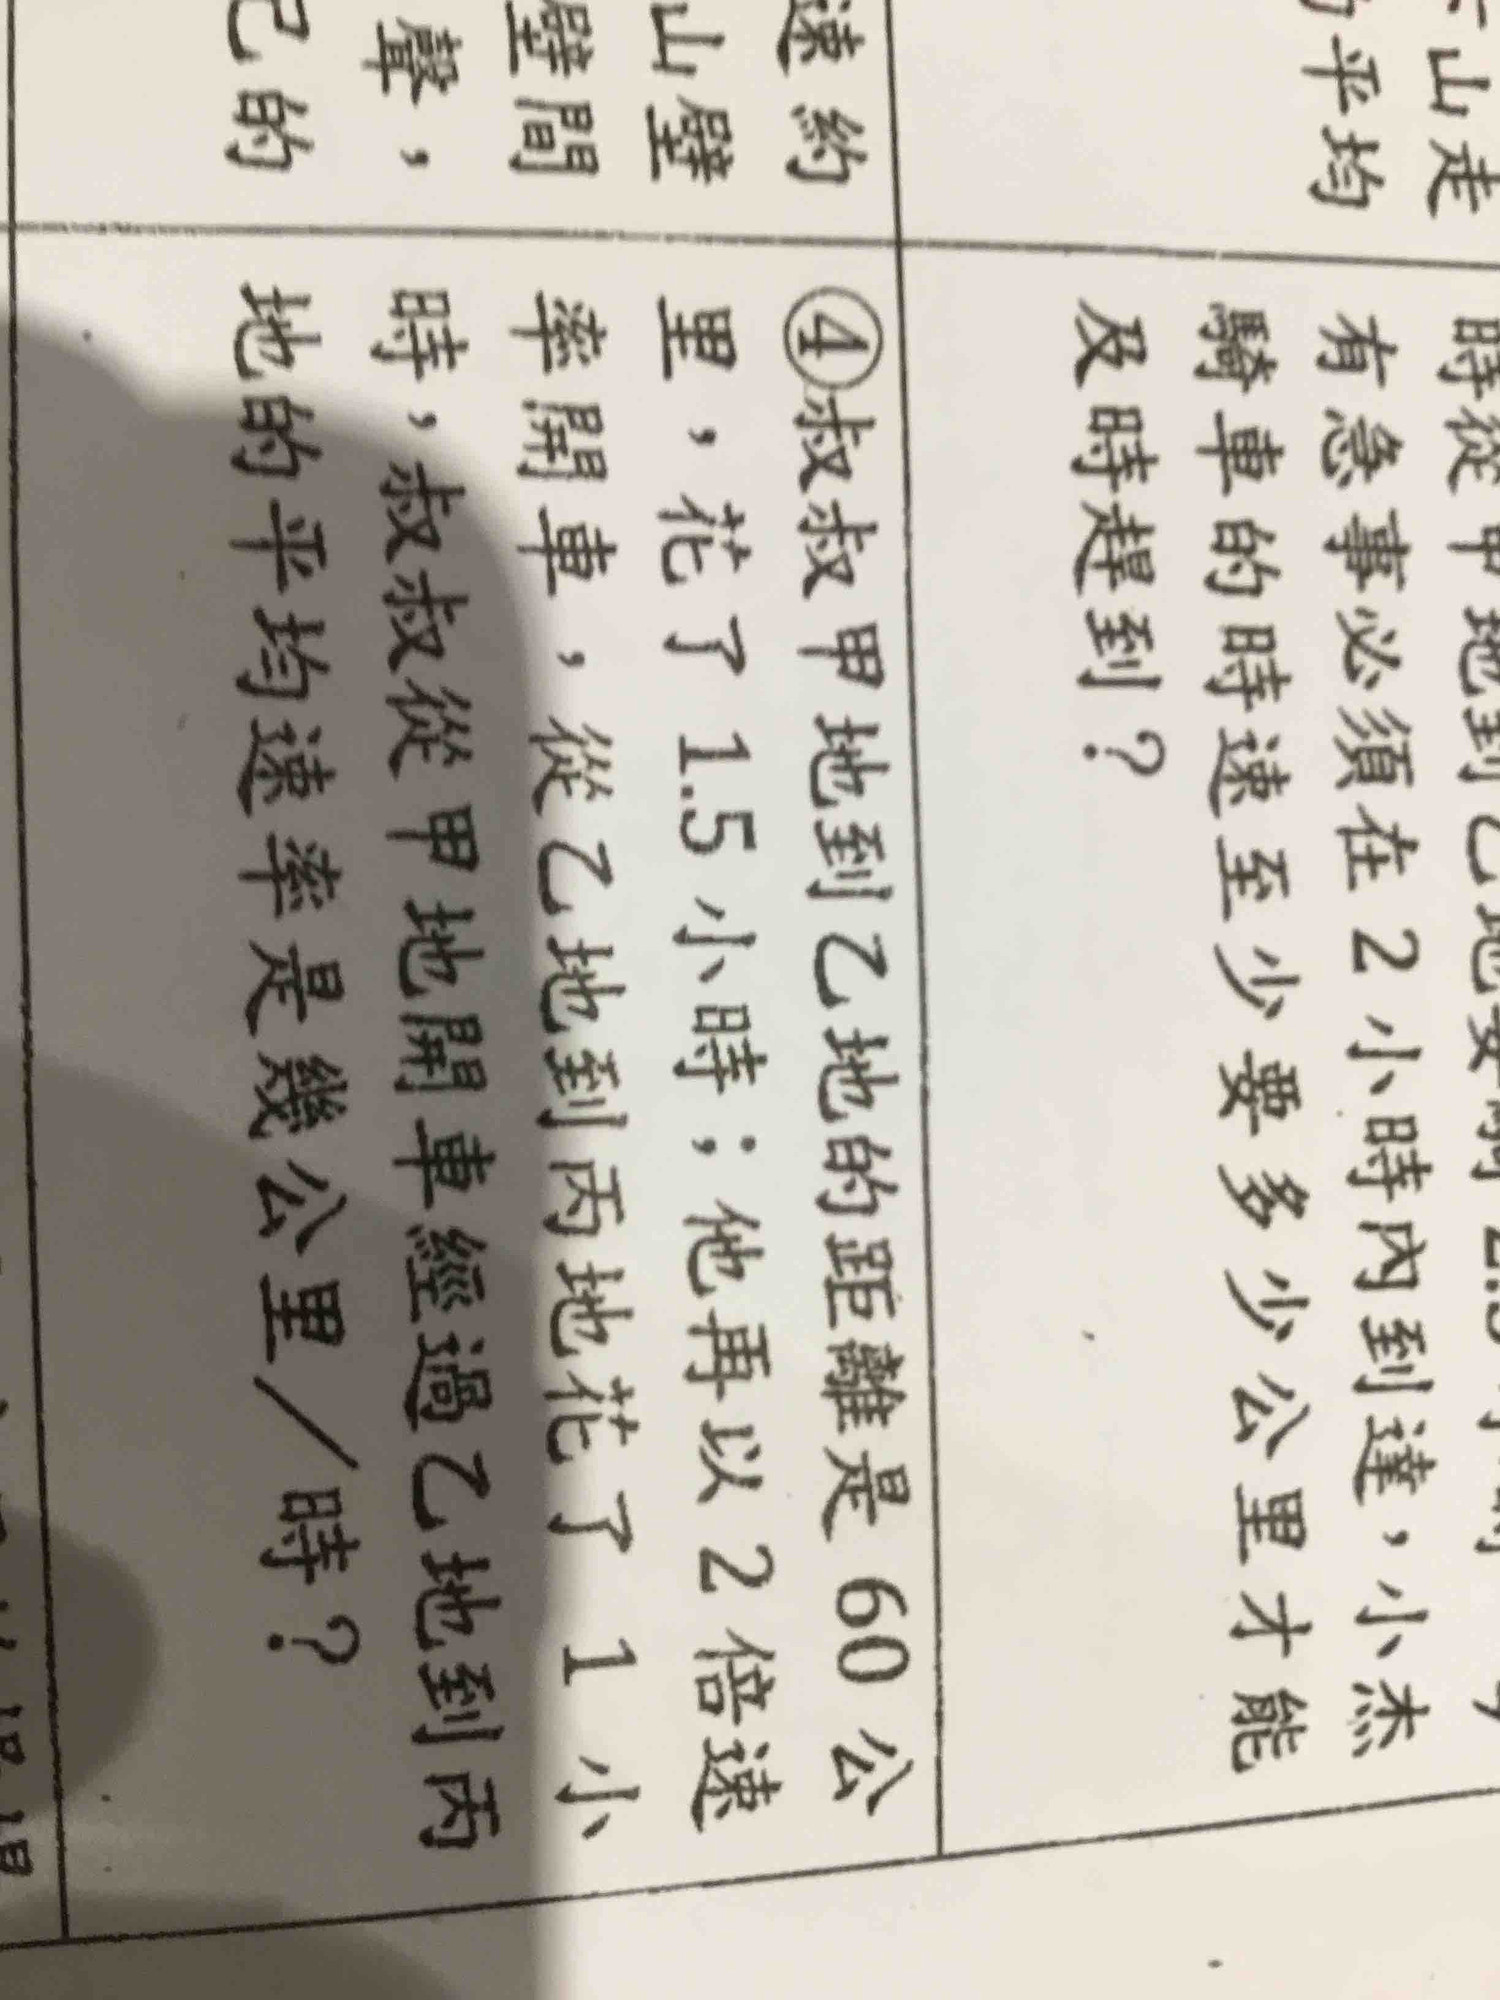 山走
平均
時從甲地到乙地要騎 2.5 小時
有急事必須在 2 小時內到達，小杰
騎車的時速至少要多少公里才能
及時趕到？
速約
山壁
壁間
聲，
己的
④叔叔甲地到乙地的距離是 60 公
里，花了 1.5 小時；他再以 2 倍速
率開車，從乙地到丙地花了 1 小
時，叔叔從甲地開車經過乙地到丙
地的平均速率是幾公里／時？